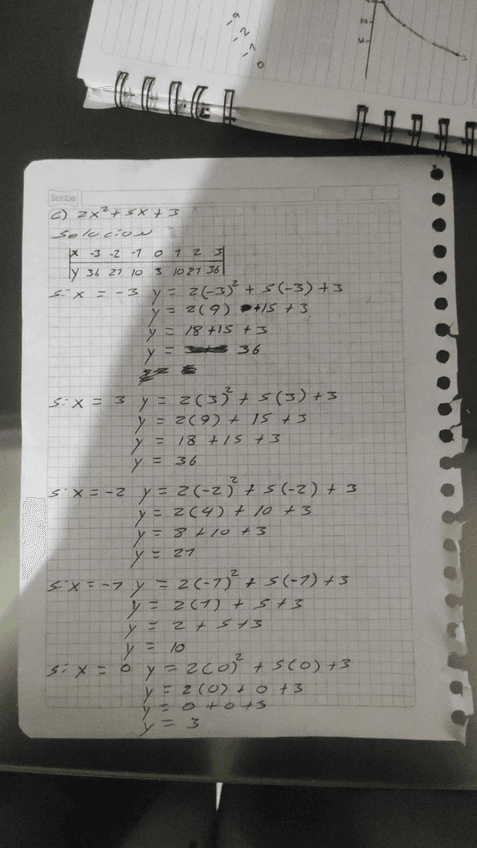 -9
-2
-7
0
Scribe
c) 2x² + 5x + 3
Solucion
x -3 -2 -1 0 1 2 3
y 36 21 10 3 10 21 36
si x = -3 y = 2(-3)² + 5(-3) + 3
y = 2(9) +15 + 3
y = 18 + 15 + 3
y = 36
si x = 3 y = 2(3)² + 5(3) + 3
y = 2(9) + 15 + 3
y = 18 + 15 + 3
y = 36
si x = -2 y = 2(-2)² + 5(-2) + 3
y = 2(4) + 10 + 3
y = 8 + 10 + 3
y = 21
si x = -1 y = 2(-1)² + 5(-1) + 3
y = 2(1) + 5 + 3
y = 2 + 5 + 3
y = 10
si x = 0 y = 2(0)² + 5(0) + 3
y = 2(0) + 0 + 3
y = 0 + 0 + 3
y = 3